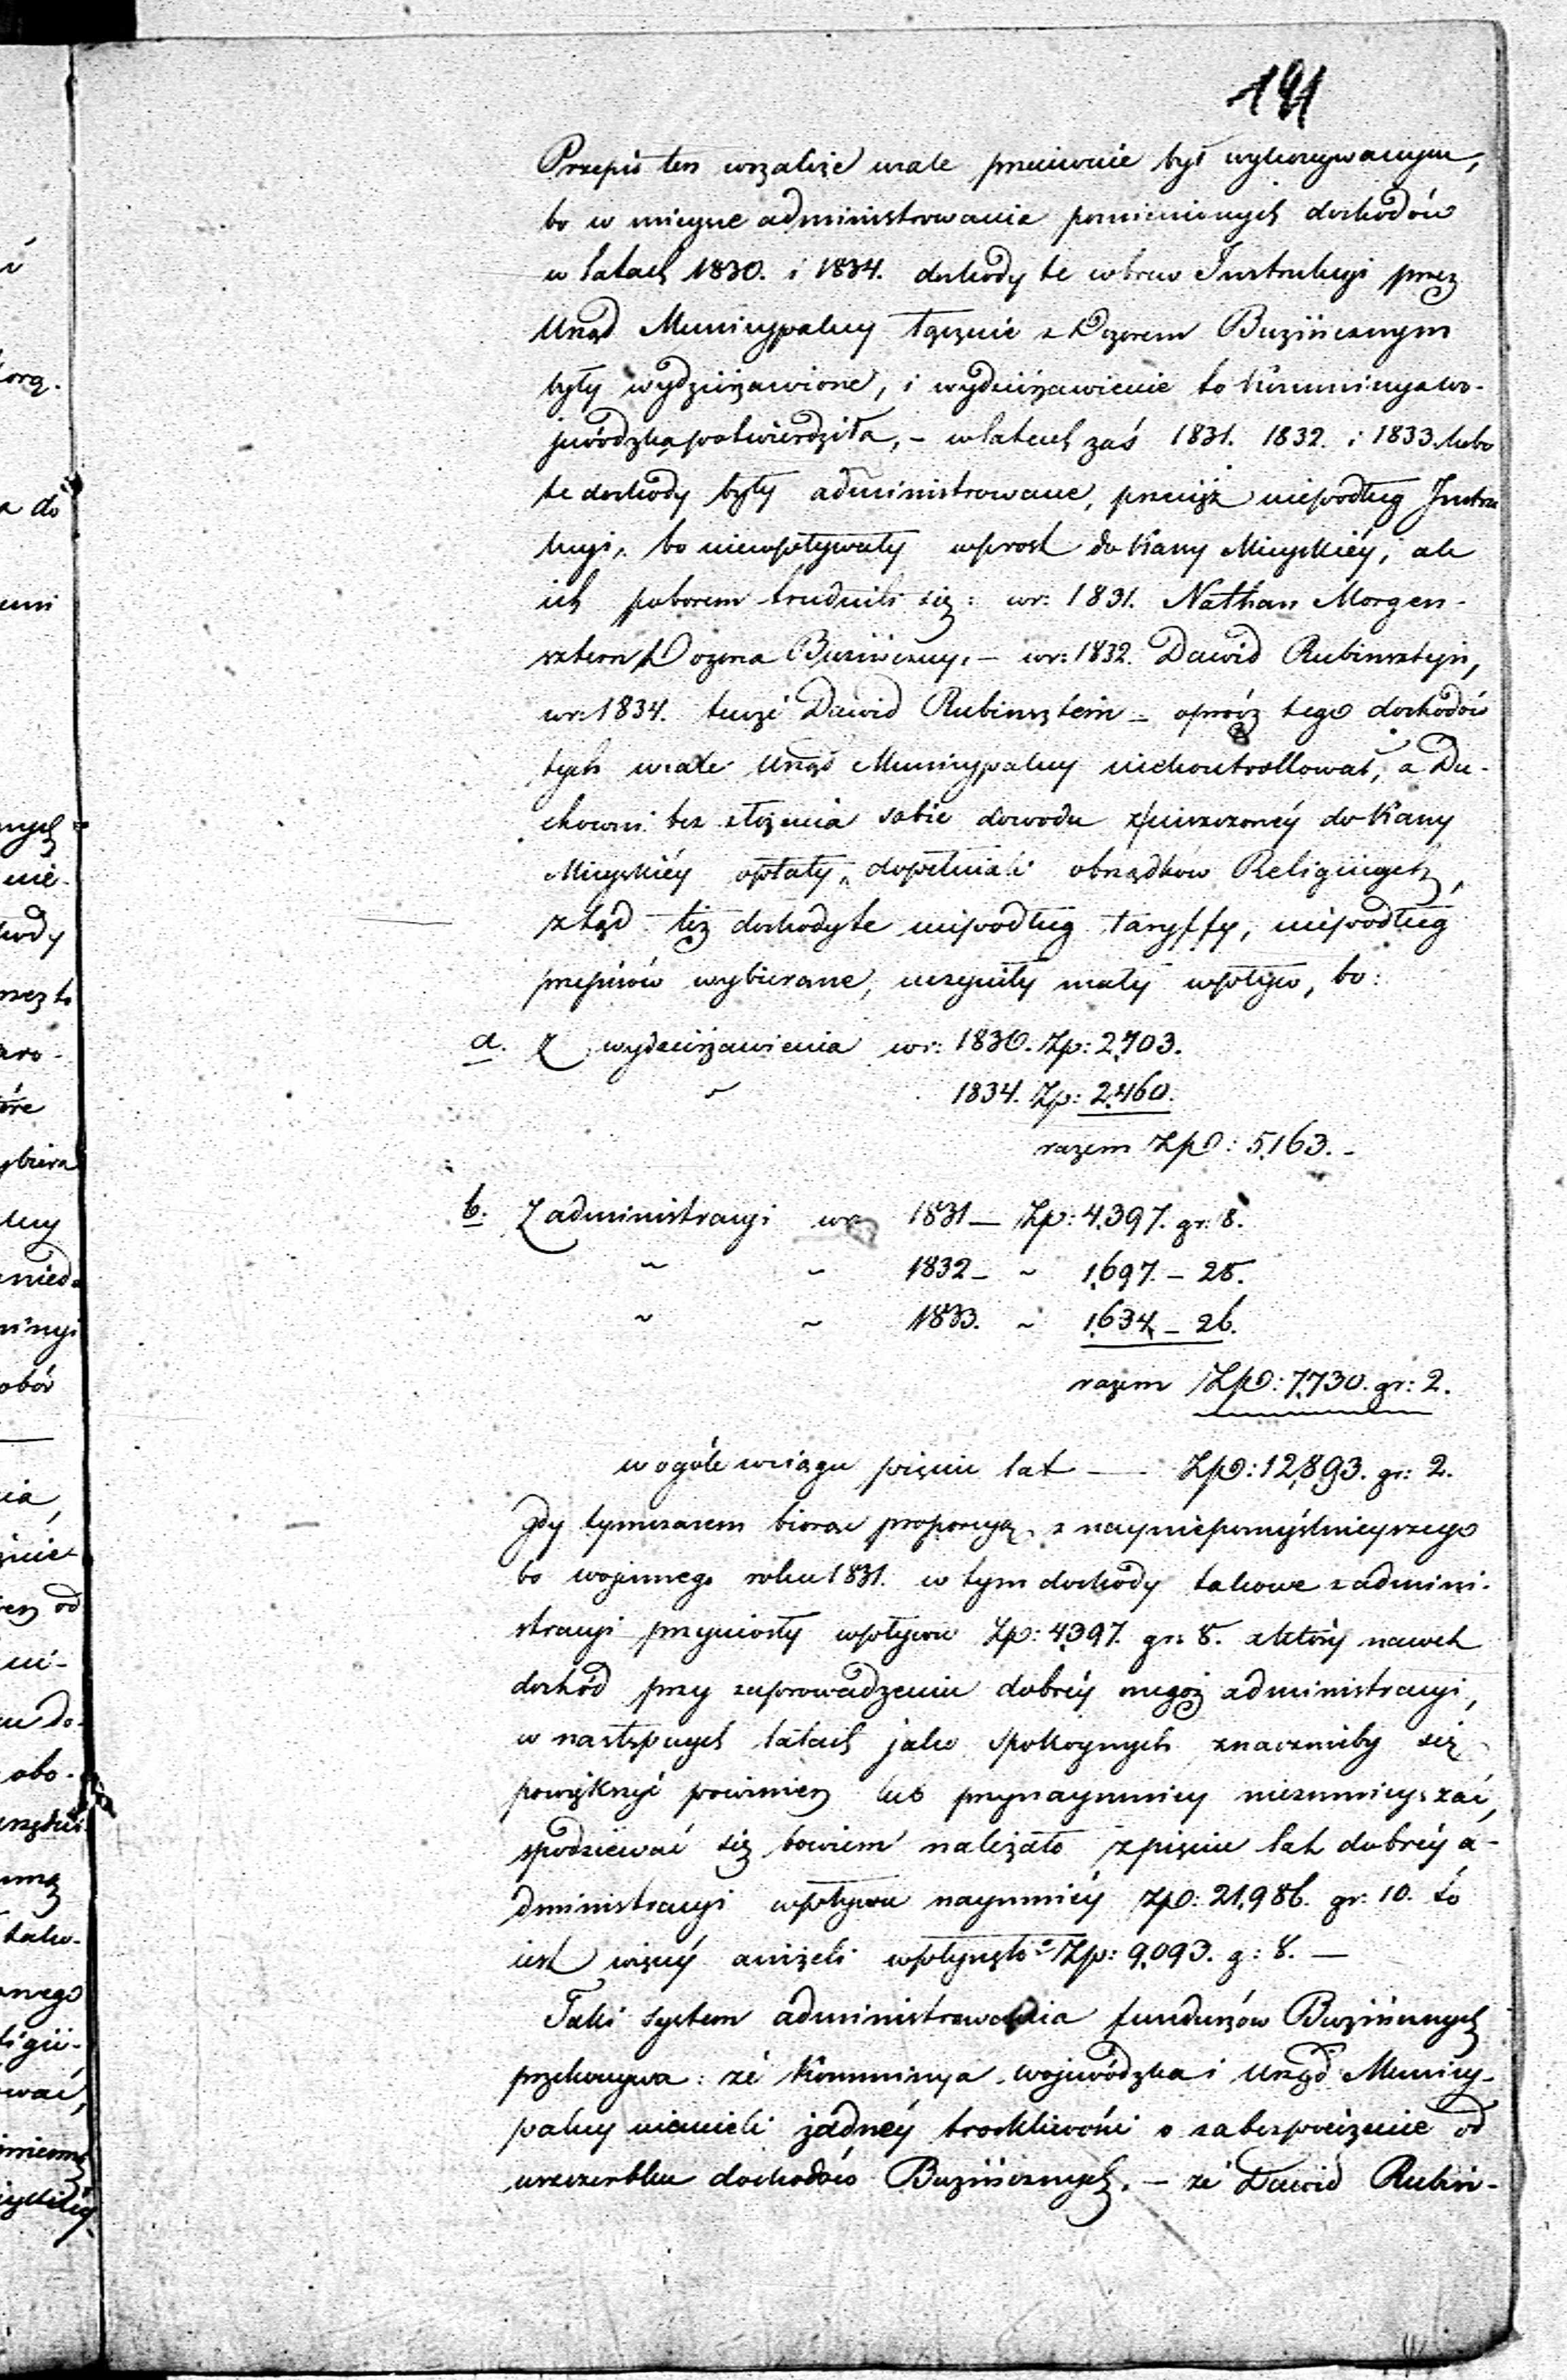 191
Przepis ten wszakże wcale przeciwnie był wykonywanym,
bo w miejsce administrowania pomienionych dochodów
w latach 1830. i 1834. dochody te wbrew Instrukcyi przez
Urząd Municypalny łącznie z Dozorem Bużnicznym
były wydzierżawione, i wydzierżawienie to Kommissya Wo-
jewódzka potwierdziła, – w latach zaś 1831. 1832. i 1833. lubo
te dochody były administrowane, przecież niepodług Instru
kcyi, bo niewpływały wprost do Kassy Mieyskiéy, ale
ich poborem trudnili się: w r: 1831. Nathan Morgen-
sztern Dozorca Bużniczny, – w r: 1832. Dawid Rubinsztejn,
w r: 1834. tenże Dawid Rubinsztein – oprócz tego dochodów
tych wcale Urząd Municypalny niekontrollował, a Du-
chowni bez złożenia sobie dowodu z uiszczonéy do Kassy
Mieyskiéy opłaty, dopełniali obrządków Religiinych,
ztąd też dochody te niepodług taryffy, niepodług
przepisów wybierane, uczyniły mały wpływ, bo:
a. Z wydzierżawienia w r: 1830. Zp: 2,703.
" 1834. Zp: 2,460.
razem Zp: 5,163. –
b. Z administracyi w r: 1831 – Zp: 4,397. gr: 8.
~ ~ 1832 – ~ 1,697. – 28.
~ ~ 1833. ~ 1,634 – 26.
razem Zp: 7,730. gr: 2.
w ogóle w ciągu pięciu lat — Zp: 12,893. gr: 2.
Gdy tymczasem biorąc proporcyą z nayniepomyślnieyszego
bo wojennego roku 1831. w tym dochody takowe z admini-
stracyi przyniosły wpływu Zp: 4,397. gr: 8. z któréy nawet
dochód przy zaprowadzeniu dobréy onegoż administracyi,
w następnych latach jako spokoynych znacznieby się
powiększyć powinien lub przynaymniey niezmnieyszać,
spodziewać się bowiem należało z pięciu lat dobréy a-
dministracyi wpływu naymniéy Zp: 21,986. gr: 10. to
iest więcéy aniżeli wpłynęło Zp: 9,093. g: 8. —
Taki system administrowania funduszów Bużnicznych
przekonywa: że Kommissya Wojewódzka i Urząd Municy-
palny niemieli żadnéy troskliwości o zabezpieczenie od
uszczerbku dochodów Bużnicznych, – że Dawid Rubin-